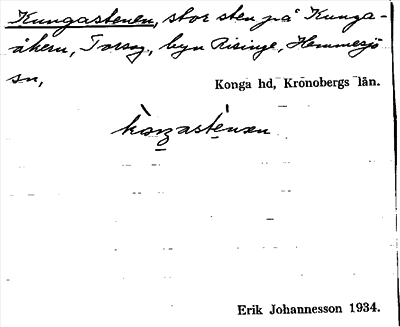 Kungastenen, stor sten på Kunga-
åkern, Torsg., byn Risinge, Hemmesjö
sn,
Konga hd, Kronobergs län.
Erik Johannesson 1934.